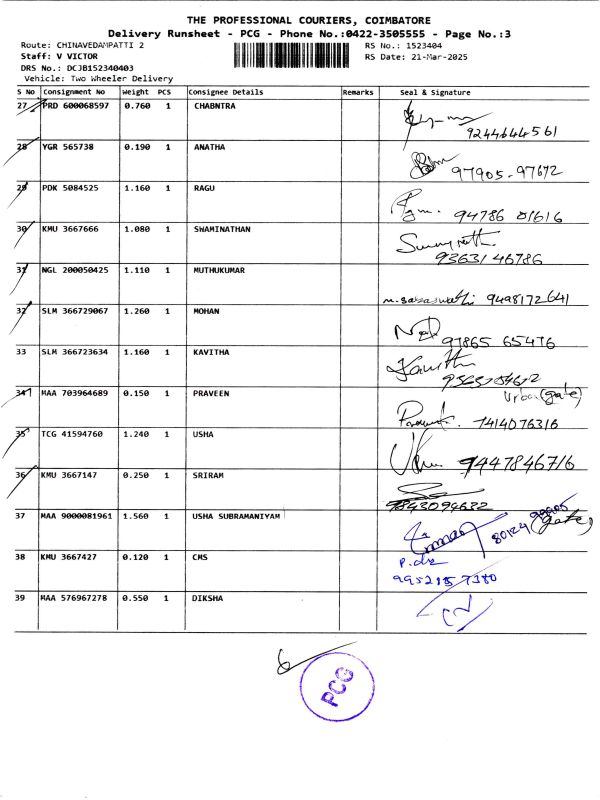 THE PROFESSIONAL COURIERS, COIMBATORE
Delivery Runsheet - PCG - Phone No.:0422-3505555 - Page No.:3
Route: CHINAVEDAMPATTI 2 RS No.: 1523404
Staff: V VICTOR RS Date: 21-Mar-2025
DRS No.: DCJB152340403
Vehicle: Two Wheeler Delivery
S No Consignment No Weight PCS Consignee Details Remarks Seal & Signature
27 PRD 600068597 0.760 1 CHABNTRA
9244644561
28 YGR 565738 0.190 1 ANATHA
97905-97672
29 PDK 5084525 1.160 1 RAGU
94786 01616
30 KMU 3667666 1.080 1 SWAMINATHAN
93631 46786
31 NGL 200050425 1.110 1 MUTHUKUMAR
m. saraswathi 9498172641
32 SLM 366729067 1.260 1 MOHAN
97865 65476
33 SLM 366723634 1.160 1 KAVITHA
Kavitha
34 MAA 703964689 0.150 1 PRAVEEN
(gate)
7414076316
35 TCG 41594760 1.240 1 USHA
Usha 9447846716
36 KMU 3667147 0.250 1 SRIRAM
9843094632
37 MAA 9000081961 1.560 1 USHA SUBRAMANIYAM
80124 99905 (gate)
38 KMU 3667427 0.120 1 CMS
99521 57380
39 MAA 576967278 0.550 1 DIKSHA
6
PCG